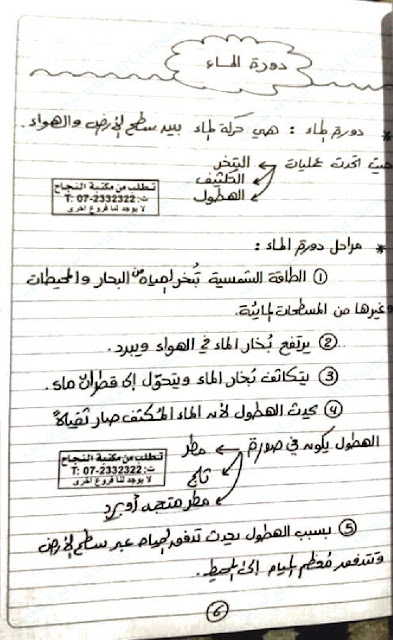 دورة الماء
* دورة الماء : هي حركة الماء بين سطح الأرض والهواء.
حيث تحدث عمليات التبخر
التكثيف
الهطول
تطلب من مكتبة النجاح
ت: 07-2332322 :T
لا يوجد لنا فروع اخرى
* مراحل دورة الماء :
① الطاقة الشمسية تُبخر المياه من البحار والمحيطات
وغيرها من المسطحات المائية.
② يرتفع بُخار الماء في الهواء ويبرد.
③ يتكاثف بُخار الماء ويتحوّل إلى قطرات ماء.
④ يحدث الهطول لأن الماء المُتكثف صار ثقيلاً
الهطول يكون في صورة مطر
ثلج
مطر متجمد أو برد
تطلب من مكتبة النجاح
ت: 07-2332322 :T
لا يوجد لنا فروع اخرى
⑤ بسبب الهطول يحدث تدفق المياه عبر سطح الأرض
وتتدفق مُعظم المياه إلى المحيط.
6